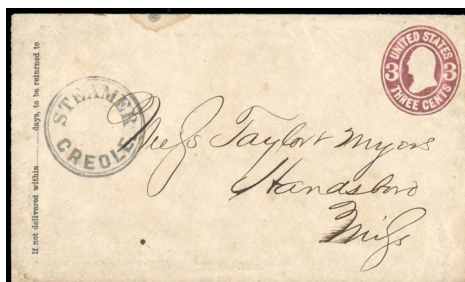 If not delivered within days, to be returned to
STEAMER
CREOLE
UNITED STATES
3 3
THREE CENTS
Messrs Taylor & Myers
Handsboro
Miss